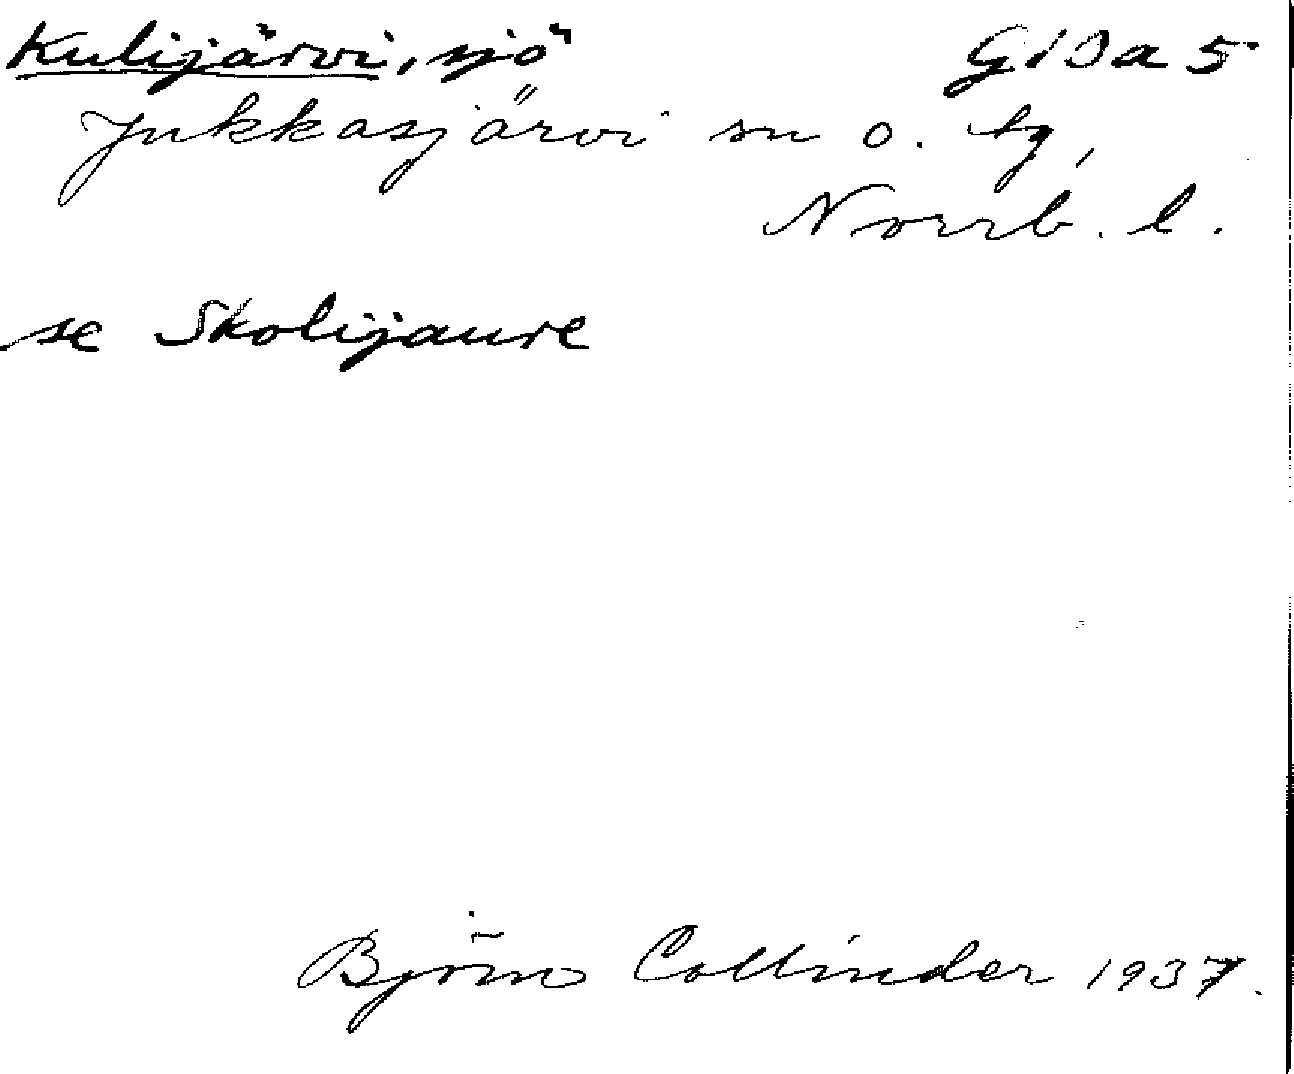 Kulijärvi, sjö G13a5
Jukkasjärvi sn o. tg,
Norrb. l.
se Skolijaure
Björn Collinder 1937.